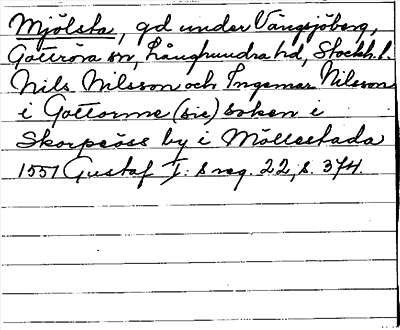 Mjölsta, gd under Vängsjöberg,
Gottröra sn, Långhundra hd, Stockh. l.
Nils Nilsson och Ingemar Nilsson
i Gottorme (sic) soken i
Skorpeöss by i Möllestada
1551 Gustaf I:s reg. 22, s. 374.